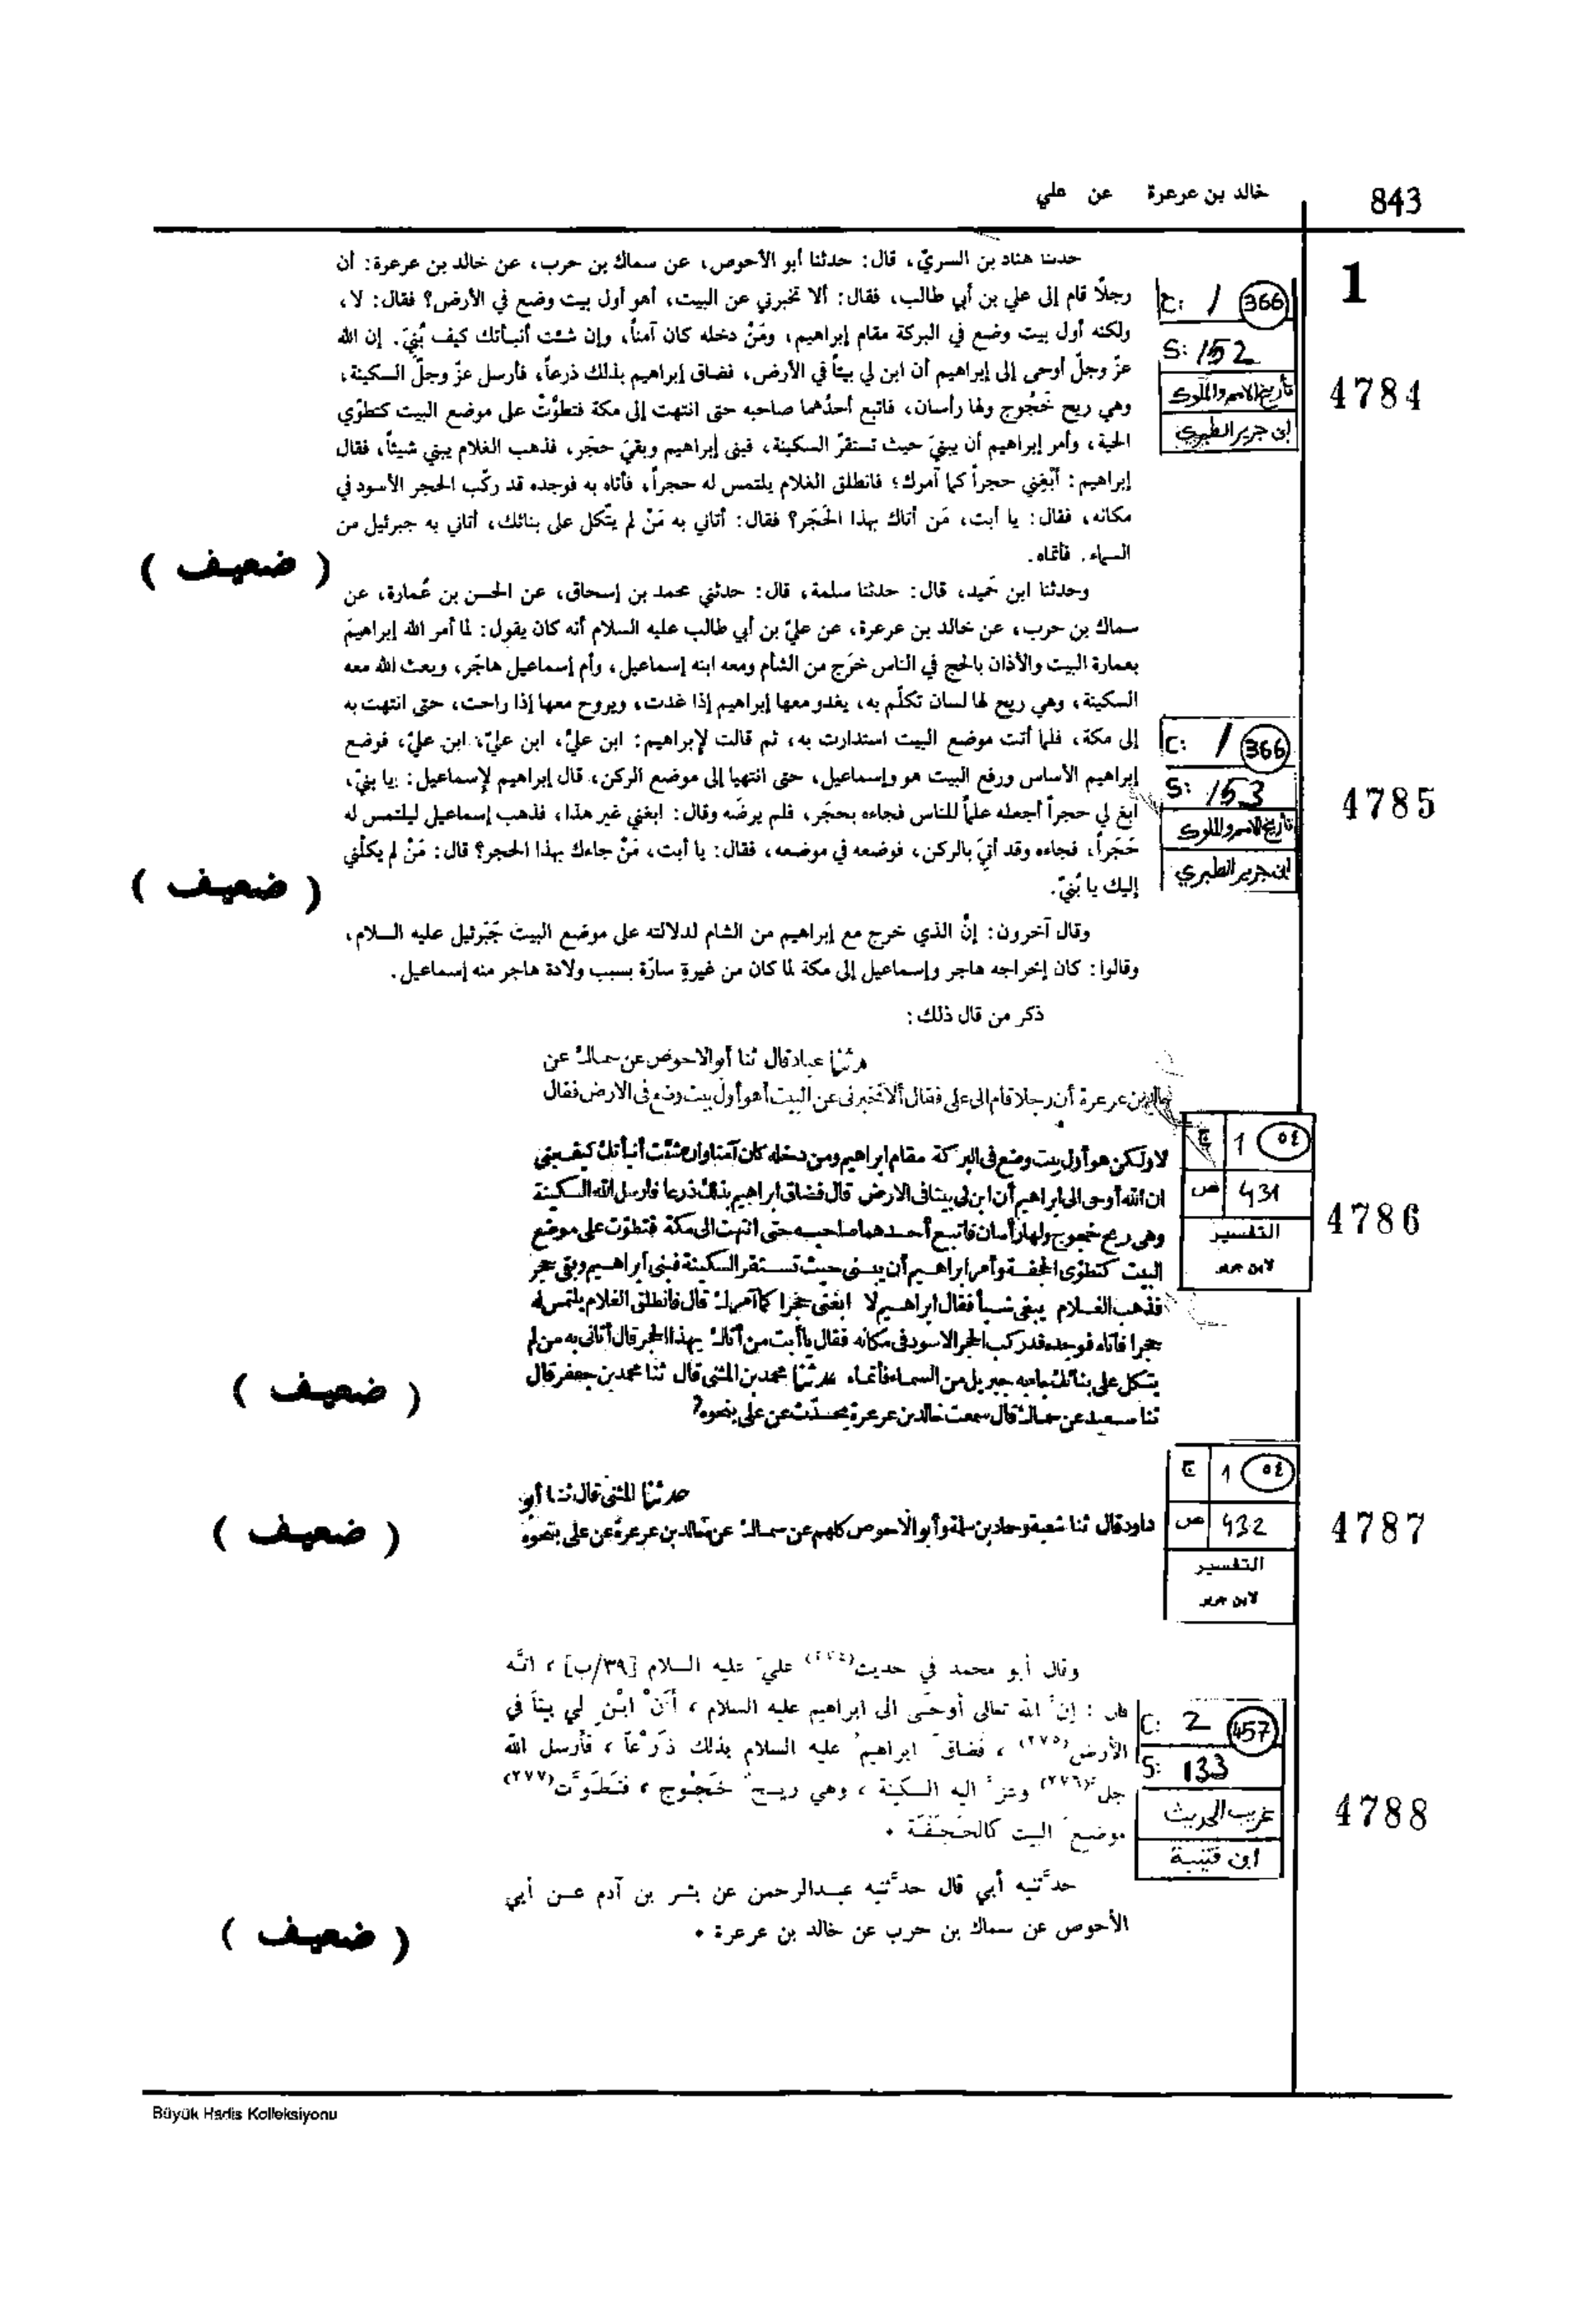 843
خالد بن عرعرة عن علي
1
حدثنا هناد بن السريّ، قال: حدثنا أبو الأحوص، عن سماك بن حرب، عن خالد بن عرعرة: أن
رجلًا قام إلى علي بن أبي طالب، فقال: ألا تخبرني عن البيت، أهو أول بيت وضع في الأرض؟ فقال: لا،
ولكنه أول بيت وضع في البركة مقام إبراهيم، ومَنْ دخله كان آمناً، وإن شئت أنبأتك كيف بُنِيَ. إن الله
عزّ وجلّ أوحى إلى إبراهيم أن ابن لي بيتاً في الأرض، فضاق إبراهيم بذلك ذرعاً، فأرسل عزّ وجلّ السكينة،
وهي ريح خَجُوج ولها رأسان، فاتبع أحدُهما صاحبه حتى انتهت إلى مكة فتطوَّتْ على موضع البيت كتطوّي
الحية، وأمر إبراهيم أن يبنيَ حيث تستقرّ السكينة، فبنى إبراهيم وبقيَ حجَر، فذهب الغلام يبني شيئاً، فقال
إبراهيم: أبْغِني حجراً كما آمرك؛ فانطلق الغلام يلتمس له حجراً، فأتاه به فوجده قد ركّب الحجر الأسود في
مكانه، فقال: يا أبت، مَن أتاك بهذا الحَجَر؟ فقال: أتاني به مَنْ لم يتّكل على بنائك، أتاني به جبرئيل من
السماء. فأتماه.
( ضعيف )
C: 1 366
S: 152
تأريخ الامم والملوك
ابن جرير الطبري
4784
وحدثنا ابن حُميد، قال: حدثنا سلمة، قال: حدثني محمد بن إسحاق، عن الحسن بن عُمارة، عن
سماك بن حرب، عن خالد بن عرعرة، عن عليّ بن أبي طالب عليه السلام أنه كان يقول: لما أمر الله إبراهيمَ
بعمارة البيت والأذان بالحج في الناس خرَج من الشأم ومعه ابنه إسماعيل، وأم إسماعيل هاجَر، وبعث الله معه
السكينة، وهي ريح لها لسان تكلّم به، يغدو معها إبراهيم إذا غدت، ويروح معها إذا راحت، حتى انتهت به
إلى مكة، فلما أتت موضع البيت استدارت به، ثم قالت لإبراهيم: ابن عليّ، ابن عليّ، ابن عليّ، فوضع
إبراهيم الأساس ورفع البيت هو وإسماعيل، حتى انتهيا إلى موضع الركن، قال إبراهيم لإسماعيل: يا بنيّ،
ابغ لي حجراً أجعله علماً للناس فجاءه بحجَر، فلم يرضَه وقال: ابغني غير هذا، فذهب إسماعيل ليلتمس له
حَجَراً، فجاءه وقد أتيَ بالركن، فوضعه في موضعه، فقال: يا أبت، مَنْ جاءك بهذا الحجر؟ قال: مَنْ لم يكلْني
إليك يا بُنيّ.
( ضعيف )
C: 1 366
S: 153
تأريخ الامم والملوك
ابن جرير الطبري
4785
وقال آخرون: إنّ الذي خرج مع إبراهيم من الشام لدلالته على موضع البيت جَبْرئيل عليه السلام،
وقالوا: كان إخراجه هاجر وإسماعيل إلى مكة لما كان من غيرةِ سارّة بسبب ولادة هاجر منه إسماعيل.
ذكر من قال ذلك:
حدثنا عباد قال ثنا أبو الاحوص عن سماك عن
خالد بن عرعرة أن رجلا قام الى علي فقال ألا تخبرني عن البيت أهو أول بيت وضع في الارض فقال
لا ولكن هو أول بيت وضع في البركة مقام ابراهيم ومن دخله كان آمنا وان شئت أنبأتك كيف بني
ان الله أوحى الى ابراهيم أن ابن لي بيتا في الارض قال فضاق ابراهيم بذلك ذرعا فارسل الله السكينة
وهي ريح خجوج ولها رأسان فاتبع أحدهما صاحبه حتى انتهت الى مكة فتطوت على موضع
البيت كتطوى الحجفة وأمر ابراهيم أن يبنى حيث تستقر السكينة فبنى ابراهيم وبقى حجر
فذهب الغلام يبغى شيأ فقال ابراهيم لا ابغنى حجرا كما آمرك قال فانطلق الغلام يلتمس له
حجرا فأتاه فوجده قد ركب الحجر الاسود في مكانه فقال يا أبت من أتاك بهذا الحجر قال أتاني به من لم
يتكل على بنائك جاء به جبريل من السماء فأتماه حدثنا محمد بن المثنى قال ثنا محمد بن جعفر قال
ثنا سعيد عن سماك قال سمعت خالد بن عرعرة يحدّث عن على بنحوه
( ضعيف )
ج 1 ٥٤
ص 431
التفسير
لابن جرير
4786
حدثنا المثنى قال ثنا أبو
داود قال ثنا شعبة وحماد بن سلمة وأبو الاحوص كلهم عن سماك عن خالد بن عرعرة عن على بنحوه
( ضعيف )
ج 1 ٥٤
ص 432
التفسير
لابن جرير
4787
وقال أبو محمد في حديث(٢٧٤) عليّ عليه السلام [٣٩/ب]، انَّه
قال: إنَّ الله تعالى أوحَى الى ابراهيم عليه السلام، أَنْ ابْنِ لي بيتاً في
الأرض(٢٧٥)، فضاقَ ابراهيمُ عليه السلام بذلك ذَرْعاً، فأرسل الله
جلَّ(٢٧٦) وعزَّ اليه السكينة، وهي ريحٌ خَجُوج، فتَطَوَّت(٢٧٧)
موضعَ البيت كالحَجَفَة.
حدَّثنيه أبي قال حدَّثنيه عبدالرحمن عن بشر بن آدم عن أبي
الأحوص عن سماك بن حرب عن خالد بن عرعرة.
( ضعيف )
C: 2 457
S: 133
غريب الحديث
ابن قتيبة
4788
Büyük Hadis Kolleksiyonu